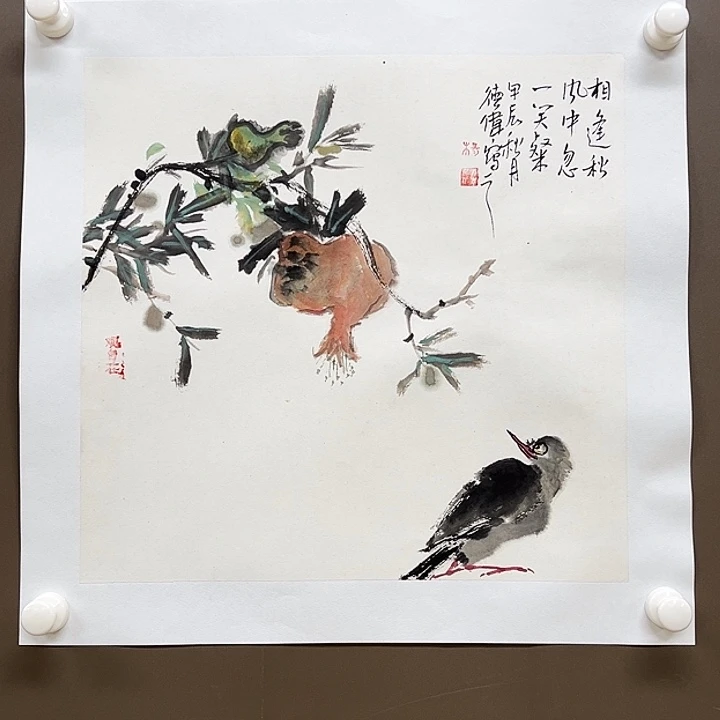 相逢秋
风中忽
一笑粲
甲辰秋月
德偉寫之